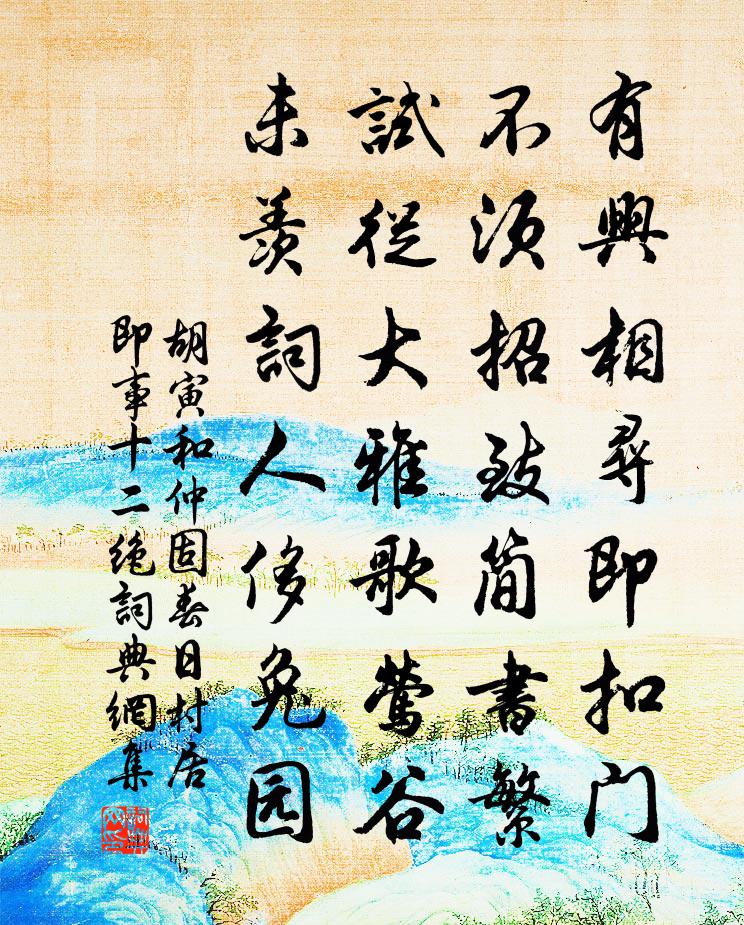 有興相尋即扣门
不須招致简書繁
試從大雅歌鶯谷
未羨詞人侈兔园
胡寅和仲固春日村居
即事十二绝詞典網集